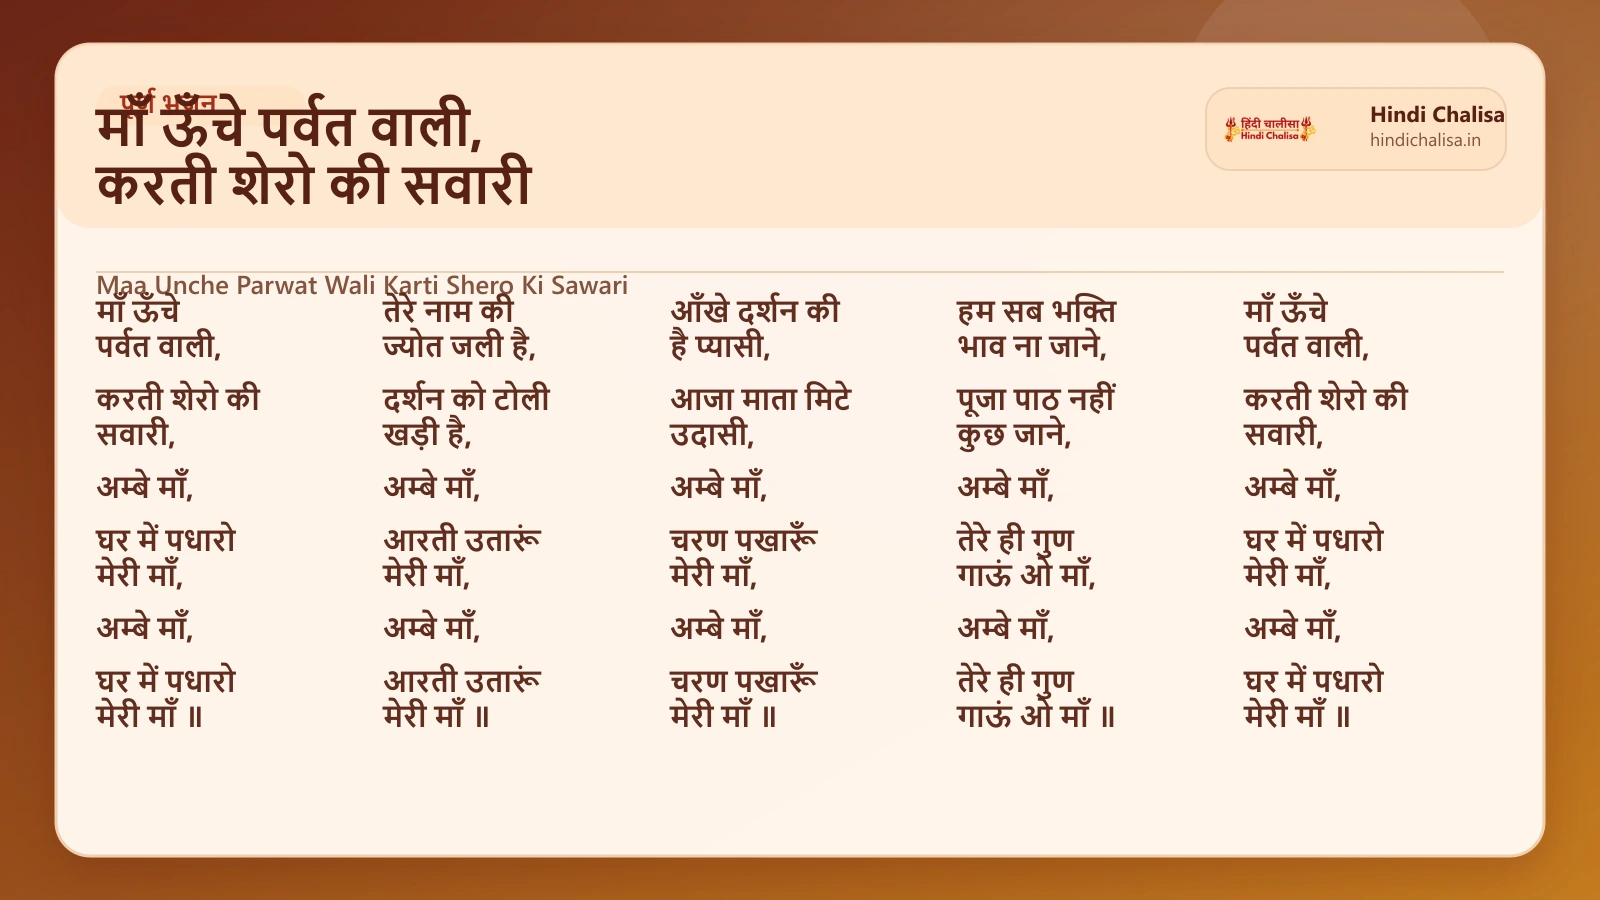 पूर्ण भजन
माँ ऊँचे पर्वत वाली,
करती शेरो की सवारी
हिंदी चालीसा
Hindi Chalisa
Hindi Chalisa
hindichalisa.in
Maa Unche Parwat Wali Karti Shero Ki Sawari
माँ ऊँचे
पर्वत वाली,
करती शेरो की
सवारी,
अम्बे माँ,
घर में पधारो
मेरी माँ,
अम्बे माँ,
घर में पधारो
मेरी माँ ॥
तेरे नाम की
ज्योत जली है,
दर्शन को टोली
खड़ी है,
अम्बे माँ,
आरती उतारूं
मेरी माँ,
अम्बे माँ,
आरती उतारूं
मेरी माँ ॥
आँखे दर्शन की
है प्यासी,
आजा माता मिटे
उदासी,
अम्बे माँ,
चरण पखारूँ
मेरी माँ,
अम्बे माँ,
चरण पखारूँ
मेरी माँ ॥
हम सब भक्ति
भाव ना जाने,
पूजा पाठ नहीं
कुछ जाने,
अम्बे माँ,
तेरे ही गुण
गाऊं ओ माँ,
अम्बे माँ,
तेरे ही गुण
गाऊं ओ माँ ॥
माँ ऊँचे
पर्वत वाली,
करती शेरो की
सवारी,
अम्बे माँ,
घर में पधारो
मेरी माँ,
अम्बे माँ,
घर में पधारो
मेरी माँ ॥